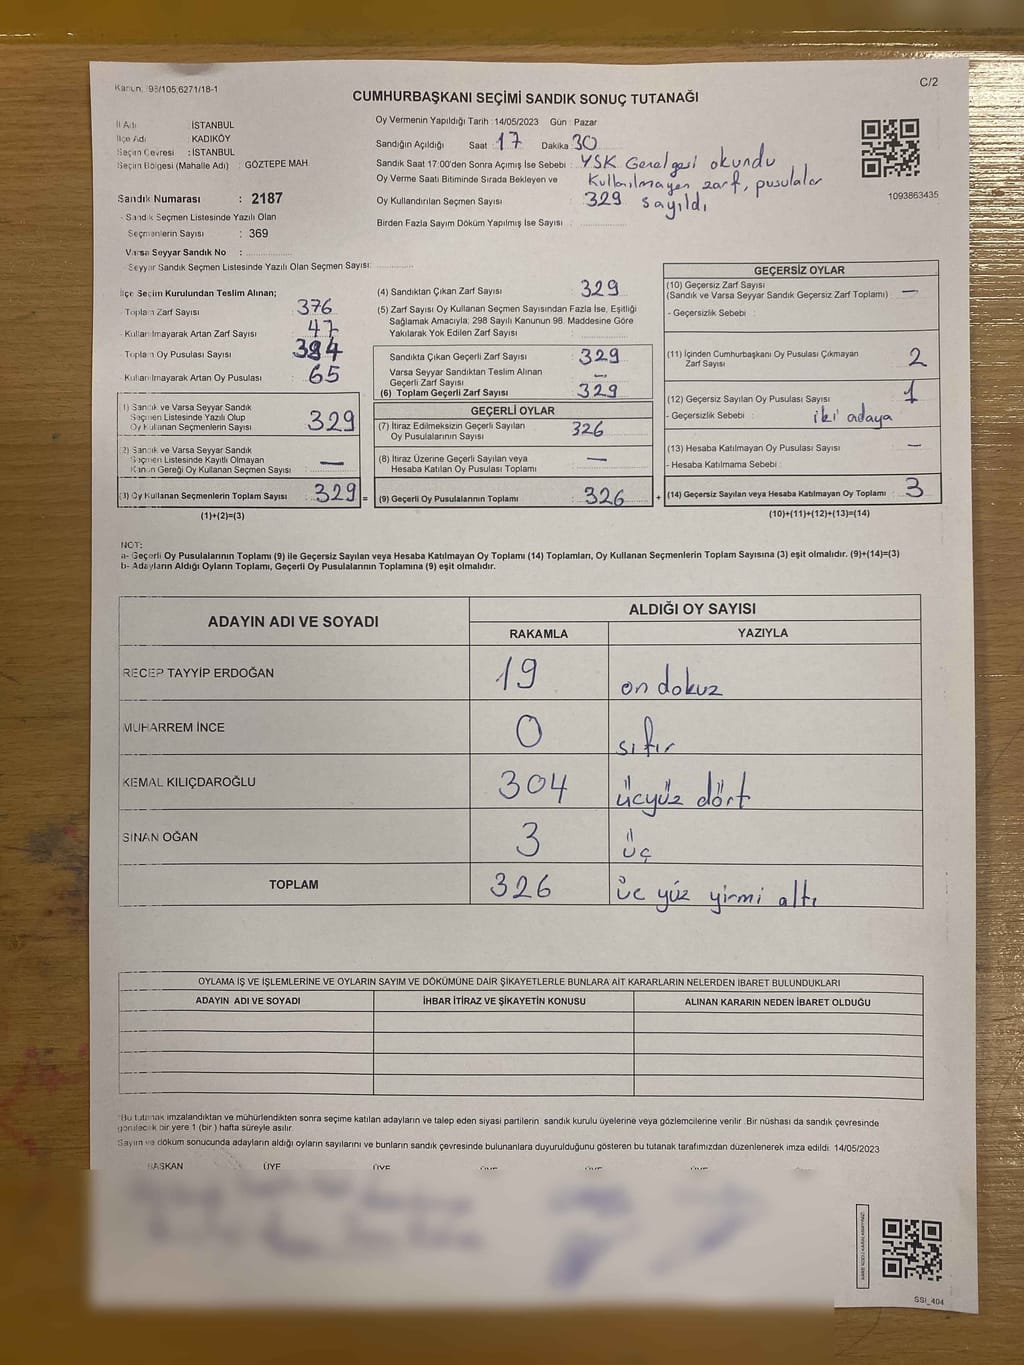 Kanun: 298/105,6271/18-1
C/2
CUMHURBAŞKANI SEÇİMİ SANDIK SONUÇ TUTANAĞI
İl Adı : İSTANBUL
İlçe Adı : KADIKÖY
Seçim Çevresi : İSTANBUL
Seçim Bölgesi (Mahalle Adı) : GÖZTEPE MAH.
Sandık Numarası : 2187
- Sandık Seçmen Listesinde Yazılı Olan
Seçmenlerin Sayısı : 369
Varsa Seyyar Sandık No : ................
- Seyyar Sandık Seçmen Listesinde Yazılı Olan Seçmen Sayısı: ............
Oy Vermenin Yapıldığı Tarih : 14/05/2023 Gün : Pazar
Sandığın Açıldığı Saat : 17 Dakika : 30
Sandık Saat 17:00'den Sonra Açımış İse Sebebi : YSK Genelgesi okundu
Oy Verme Saati Bitiminde Sırada Bekleyen ve kullanılmayan zarf, pusulalar
Oy Kullandırılan Seçmen Sayısı : 329 sayıldı
Birden Fazla Sayım Döküm Yapılmış İse Sayısı : ................
1093863435
İlçe Seçim Kurulundan Teslim Alınan;
- Toplam Zarf Sayısı : 376
- Kullanılmayarak Artan Zarf Sayısı : 47
- Toplam Oy Pusulası Sayısı : 394
- Kullanılmayarak Artan Oy Pusulası : 65
1) Sandık ve Varsa Seyyar Sandık
Seçmen Listesinde Yazılı Olup
Oy Kullanan Seçmenlerin Sayısı : 329
2) Sandık ve Varsa Seyyar Sandık
Seçmen Listesinde Kayıtlı Olmayan
Kanun Gereği Oy Kullanan Seçmen Sayısı : —
(3) Oy Kullanan Seçmenlerin Toplam Sayısı : 329 =
(1)+(2)=(3)
(4) Sandıktan Çıkan Zarf Sayısı : 329
(5) Zarf Sayısı Oy Kullanan Seçmen Sayısından Fazla İse, Eşitliği
Sağlamak Amacıyla; 298 Sayılı Kanunun 98. Maddesine Göre
Yakılarak Yok Edilen Zarf Sayısı : ................
Sandıkta Çıkan Geçerli Zarf Sayısı : 329
Varsa Seyyar Sandıktan Teslim Alınan
Geçerli Zarf Sayısı : —
(6) Toplam Geçerli Zarf Sayısı : 329
GEÇERLİ OYLAR
(7) İtiraz Edilmeksizin Geçerli Sayılan
Oy Pusulalarının Sayısı : 326
(8) İtiraz Üzerine Geçerli Sayılan veya
Hesaba Katılan Oy Pusulası Toplamı : —
(9) Geçerli Oy Pusulalarının Toplamı : 326 +
GEÇERSİZ OYLAR
(10) Geçersiz Zarf Sayısı : —
(Sandık ve Varsa Seyyar Sandık Geçersiz Zarf Toplamı)
- Geçersizlik Sebebi :
(11) İçinden Cumhurbaşkanı Oy Pusulası Çıkmayan
Zarf Sayısı : 2
(12) Geçersiz Sayılan Oy Pusulası Sayısı : 1
- Geçersizlik Sebebi : iki adaya
(13) Hesaba Katılmayan Oy Pusulası Sayısı : —
- Hesaba Katılmama Sebebi :
(14) Geçersiz Sayılan veya Hesaba Katılmayan Oy Toplamı : 3
(10)+(11)+(12)+(13)=(14)
NOT:
a- Geçerli Oy Pusulalarının Toplamı (9) ile Geçersiz Sayılan veya Hesaba Katılmayan Oy Toplamı (14) Toplamları, Oy Kullanan Seçmenlerin Toplam Sayısına (3) eşit olmalıdır. (9)+(14)=(3)
b- Adayların Aldığı Oyların Toplamı, Geçerli Oy Pusulalarının Toplamına (9) eşit olmalıdır.
ADAYIN ADI VE SOYADI
ALDIĞI OY SAYISI
RAKAMLA YAZIYLA
RECEP TAYYİP ERDOĞAN 19 on dokuz
MUHARREM İNCE 0 sıfır
KEMAL KILIÇDAROĞLU 304 ücyüz dört
SİNAN OĞAN 3 üç
TOPLAM 326 üc yüz yirmi altı
OYLAMA İŞ VE İŞLEMLERİNE VE OYLARIN SAYIM VE DÖKÜMÜNE DAİR ŞİKAYETLERLE BUNLARA AİT KARARLARIN NELERDEN İBARET BULUNDUKLARI
ADAYIN ADI VE SOYADI İHBAR İTİRAZ VE ŞİKAYETİN KONUSU ALINAN KARARIN NEDEN İBARET OLDUĞU
*Bu tutanak imzalandıktan ve mühürlendikten sonra seçime katılan adayların ve talep eden siyasi partilerin sandık kurulu üyelerine veya gözlemcilerine verilir. Bir nüshası da sandık çevresinde
görülecek bir yere 1 (bir) hafta süreyle asılır.
Sayım ve döküm sonucunda adayların aldığı oyların sayılarını ve bunların sandık çevresinde bulunanlara duyurulduğunu gösteren bu tutanak tarafımızdan düzenlenerek imza edildi. 14/05/2023
BAŞKAN ÜYE ÜYE ÜYE ÜYE ÜYE
SSI_404